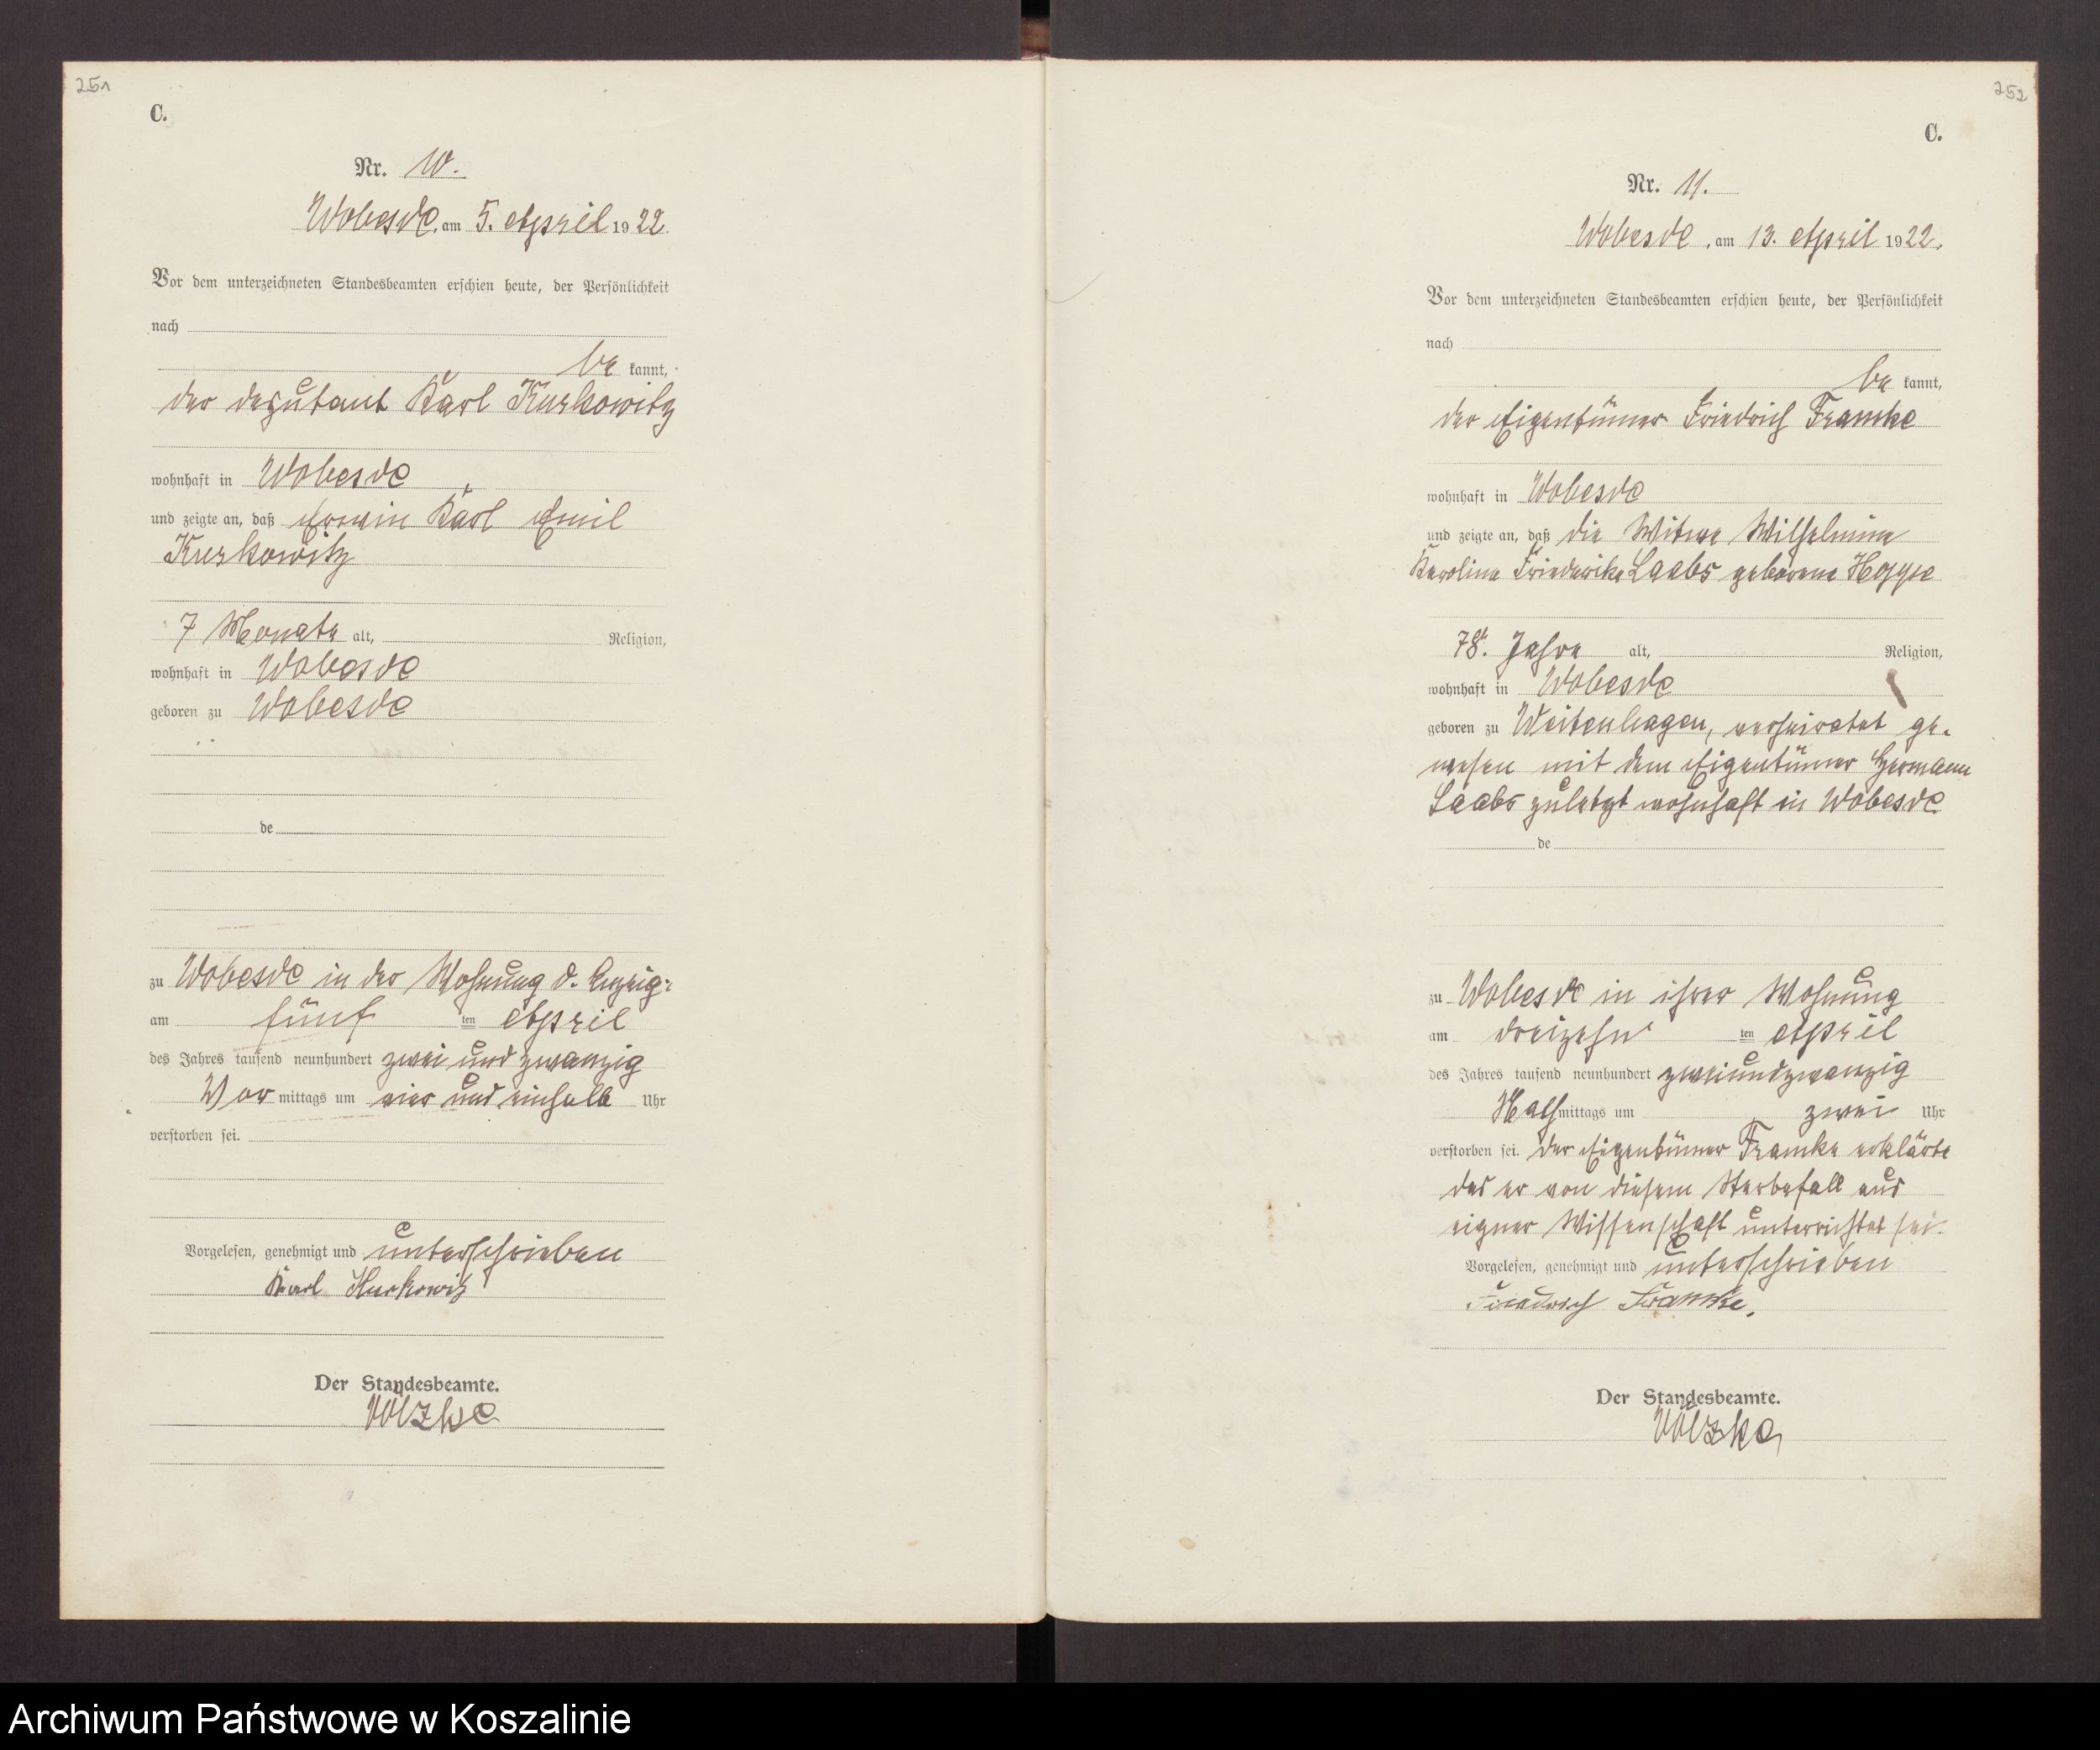 251
C.
Nr. 10.
Wobesde, am 5. April 1922.
Vor dem unterzeichneten Standesbeamten erschien heute, der Persönlichkeit
nach
be kannt,
der Deputant Karl Kurkowitz
wohnhaft in Wobesde
und zeigte an, daß Erwin Karl Emil
Kurkowitz
7 Monate alt, Religion,
wohnhaft in Wobesde
geboren zu Wobesde
de
zu Wobesde in der Wohnung d. Anzeig:
am fünf ten April
des Jahres tausend neunhundert zwei und zwanzig
Vor mittags um vier und einhalb Uhr
verstorben sei.
Vorgelesen, genehmigt und unterschrieben
Karl Kurkowitz
Der Standesbeamte.
Völzke
252
C.
Nr. 11.
Wobesde, am 13. April 1922.
Vor dem unterzeichneten Standesbeamten erschien heute, der Persönlichkeit
nach
be kannt,
der Eigentümer Friedrich Framke
wohnhaft in Wobesde
und zeigte an, daß die Witwe Wilhelmine
Karoline Friederike Laabs geborene Hoppe
78. Jahre alt, Religion,
wohnhaft in Wobesde
geboren zu Weitenhagen, verheiratet ge-
wesen mit dem Eigentümer Hermann
Laabs zuletzt wohnhaft in Wobesde
de
zu Wobesde in ihrer Wohnung
am dreizehn ten April
des Jahres tausend neunhundert zweiundzwanzig
mittags um zwei Uhr
verstorben sei. Der Eigentümer Framke erklärte
das er von diesem Sterbefall aus
eigner Wissenschaft unterrichtet sei.
Vorgelesen, genehmigt und unterschrieben
Friedrich Framke.
Der Standesbeamte.
Völzke
Archiwum Państwowe w Koszalinie